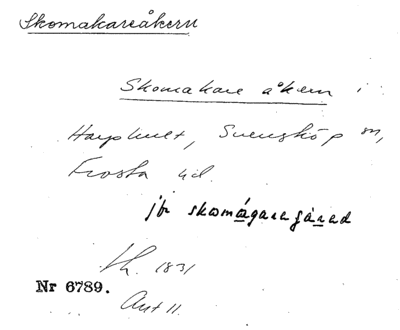 Skomakareåkern
Skomakare åkern i
Harphult, Svensköp sn,
Frosta hd.
jfr skomágaragárad
Lh. 1831
Nr 6789.
Akt 11.